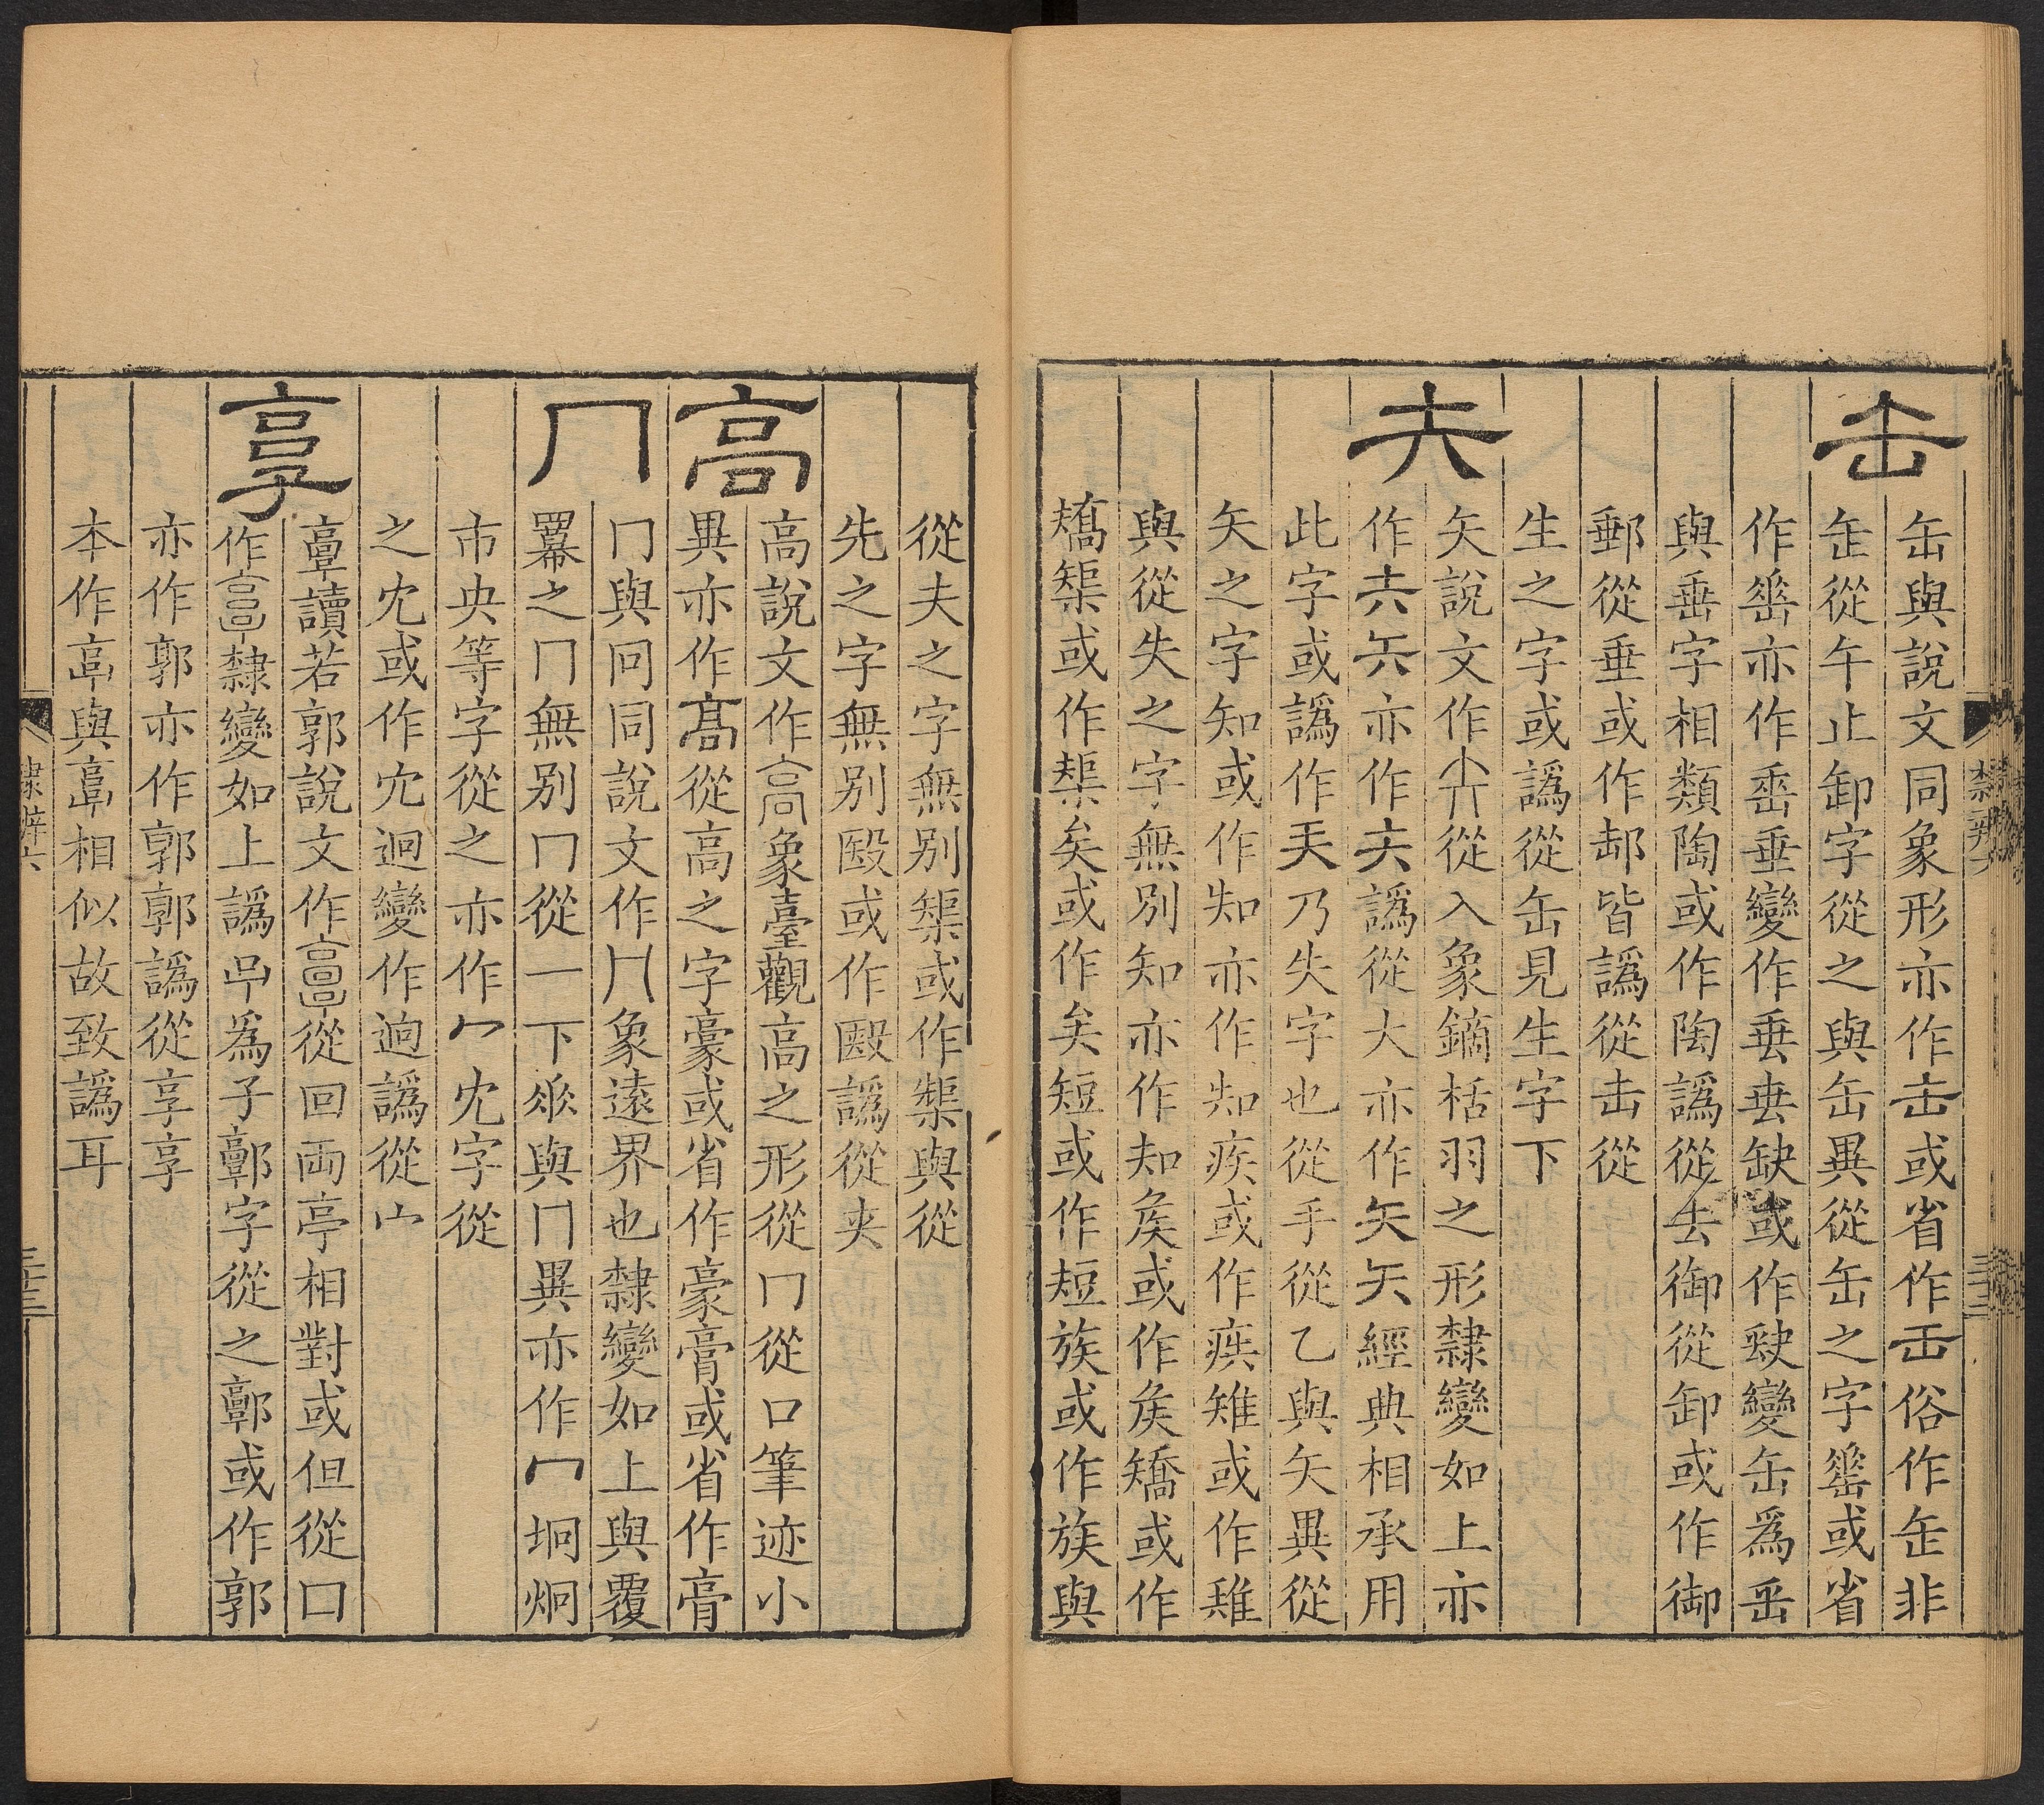 缶
缶與說文同象形亦作𦈢或省作𦈢俗作缶非
缶從午止卸字從之與缶異從缶之字䍃或省
作䍃亦作𡍮垂變作垂𡍮缺或作䦼變缶爲𦈢
與垂字相類陶或作陶譌從𦈢御從卸或作御
郵從垂或作𨛜皆譌從𦈢從
生之字或譌從缶見生字下
矢
矢說文作从入象鏑栝羽之形隸變如上亦
作亦作譌從大亦作矢矢經典相承用
此字或譌作天乃失字也從手從乙與矢異從
矢之字知或作知亦作知疾或作疾雉或作雉
與從失之字無別知亦作知矦或作矦矯或作
矯榘或作榘矣或作矣短或作短族或作族與
從夫之字無別榘或作榘與從
先之字無別毉或作毉譌從夹
高
高說文作髙象臺觀高之形從冂從口筆迹小
異亦作髙從高之字豪或省作豪膏或省作膏
冂
冂與冋同說文作冂象遠界也隸變如上與覆
羃之冂無別冂從一下𠂢與冂異亦作冖坰炯
市央等字從之亦作冖冘字從
之冘或作宂迥變作逈譌從宀
享
𩫏讀若郭說文作𩫖從回兩亭相對或但從口
作𩫏隸變如上譌𠯑爲子鄿字從之鄿或作郭
亦作郭亦作郭郭譌從享享
本作𦎫與𩫏相似故致譌耳
隸辨六
三十三